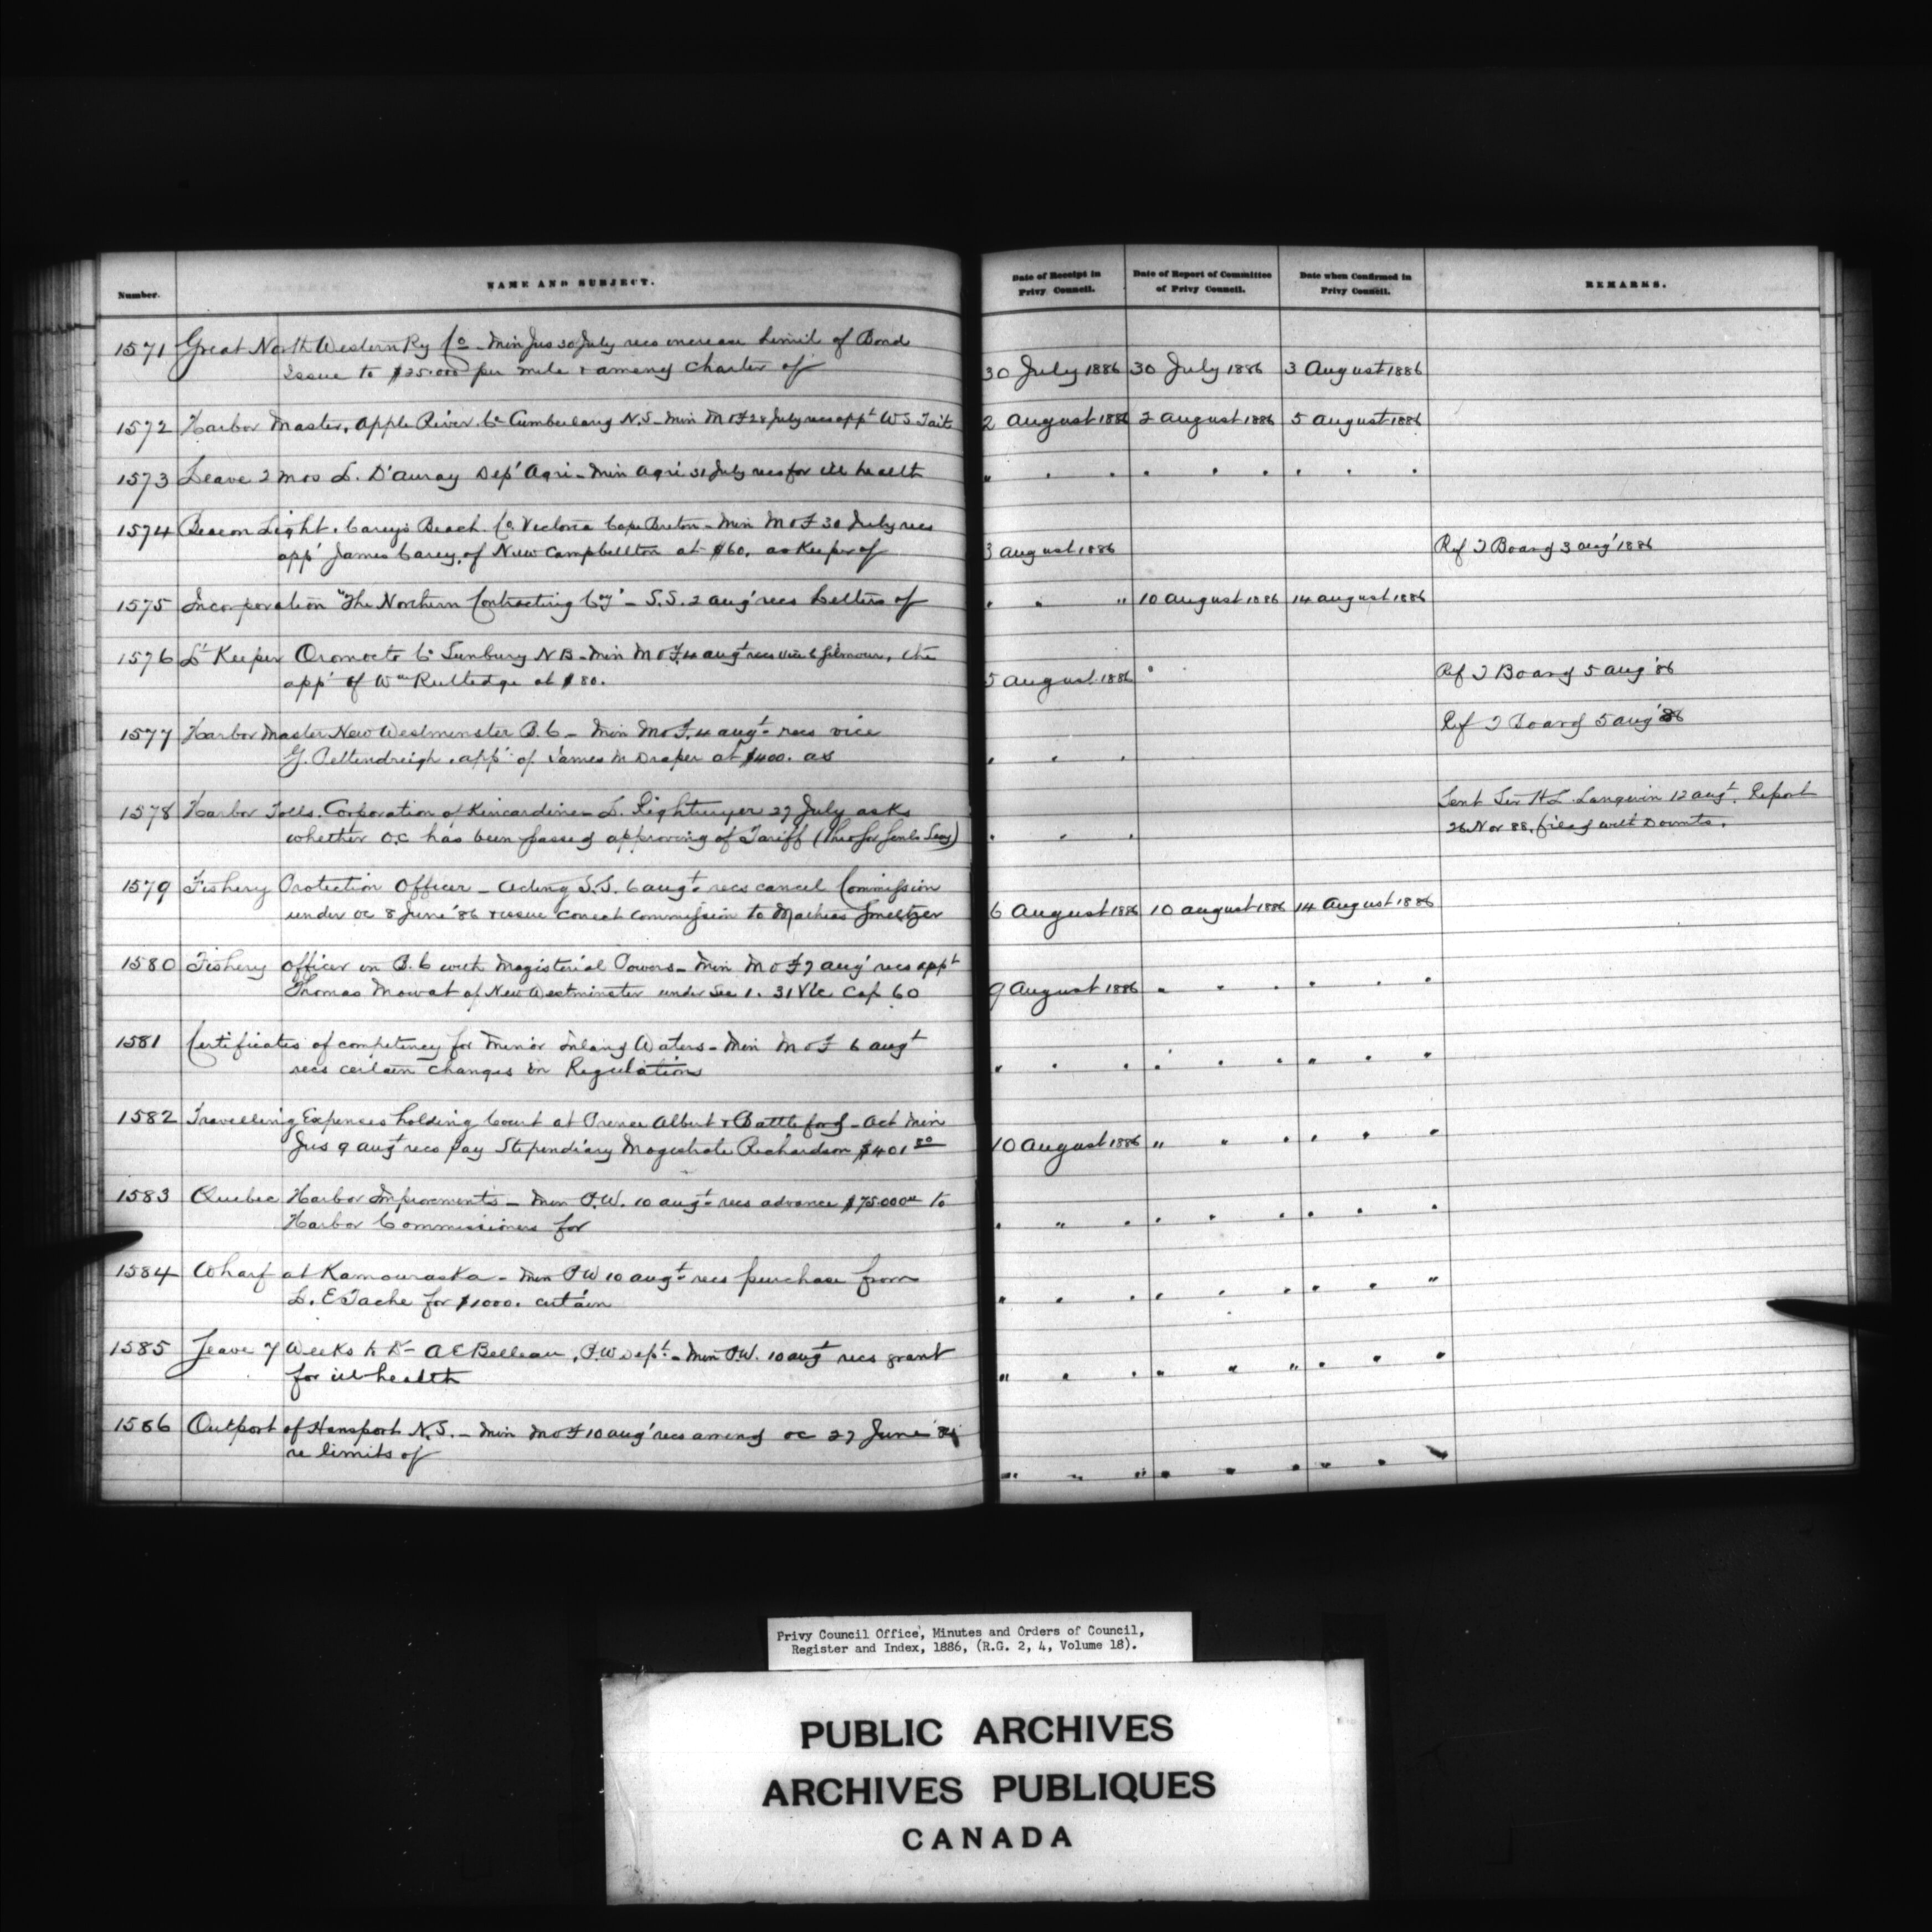 Number.
NAME AND SUBJECT.
Date of Receipt in Privy Council.
Date of Report of Committee of Privy Council.
Date when Confirmed in Privy Council.
REMARKS.
1571 Great North Western Ry Co - Min Jus 30 July recs increase limit of Bond
issue to $25.000 per mile & amend Charter of
30 July 1886 30 July 1886 3 August 1886
1572 Harbor Master, Apple River, Co Cumberland N.S - Min M of F 28 July recs appt W S Tait
2 August 1886 2 August 1886 5 August 1886
1573 Leave 2 mos L. D'auray Dept Agri - Min Agri 31 July recs for ill health
" " " " " " " " "
1574 Beacon Light. Carey's Beach. Co Victoria Cape Breton - Min M of F 30 July recs
appt James Carey, of New Campbellton at $60. as Keeper of
3 August 1886
Ref T Board 3 Aug' 1886
1575 Incorporation "The Northern Contracting Coy" - S.S. 2 aug' recs Letters of
" " " 10 August 1886 14 August 1886
1576 Lt Keeper Oromocto Co Sunbury NB - Min M of F. 4 augt recs vice Gilmour, the
appt of Wm Rutledge at $80.
5 August 1886 "
Ref T Board 5 Aug '86
1577 Harbor Master New Westminster B.C - Min M of F. 4 augt recs vice
G. Pittendreigh. appt of James M Draper at $400. as
" " "
Ref T Board 5 aug '86
1578 Harbor Tolls. Corporation of Kincardine - L. Rightmyer 27 July asks
whether O.C has been passed approving of Tariff
" " "
Sent Sir H L. Langevin 12 augt. Report
26 Nov 88. filed with
1579 Fishery Protection Officer - Acting S.S. 6 augt recs cancel Commission
under oc 8 June '86 & issue correct commission to Mathias Smeltzer
6 August 1886 10 August 1886 14 August 1886
1580 Fishery Officer in B.C with Magisterial Powers - Min M of F 7 aug' recs appt
Thomas Mowat of New Westminster under Sec 1. 31 Vic Cap 60
9 August 1886 " " " " " "
1581 Certificates of competency for Minor Inland Waters - Min M of F 6 augt
recs certain changes in Regulations
" " " " " " " " "
1582 Travelling Expenses holding Court at Prince Albert & Battleford - Act Min
Jus 9 augt recs pay Stipendiary Magistrate Richardson $401 80
10 August 1886 " " " " " "
1583 Quebec Harbor Improvements - Min P.W. 10 augt recs advance $75.000 00 to
Harbor Commissioners for
" " " " " " " " "
1584 Wharf at Kamouraska - Min P W 10 augt recs purchase from
L. E Tache for $1000. certain
" " " " " " " " "
1585 Leave 7 Weeks to Dr A E Belleau, P.W Dept. - Min P.W. 10 augt recs grant
for ill health
" " " " " " " " "
1586 Outport of Hansport N.S. - Min M of F 10 aug' recs amend oc 27 June
re limits of
" " " " " " " " "
Privy Council Office, Minutes and Orders of Council,
Register and Index, 1886, (R.G. 2, 4, Volume 18).
PUBLIC ARCHIVES
ARCHIVES PUBLIQUES
CANADA